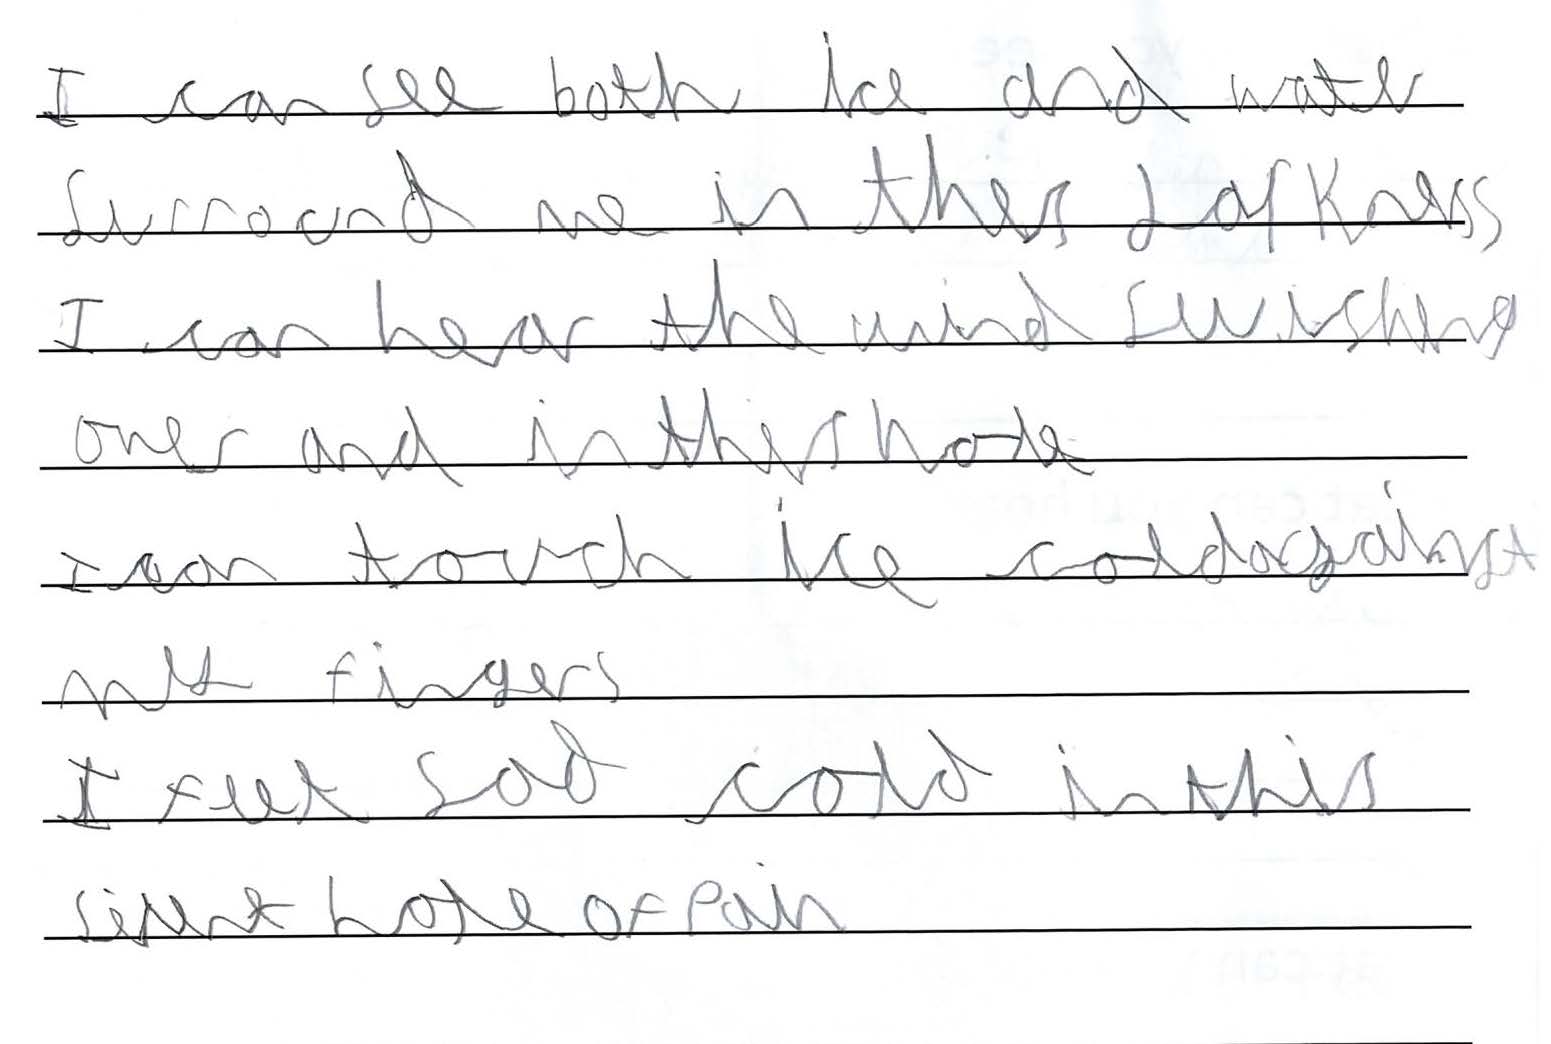 I can see both ice and water
surround me in this darkness
I can hear the wind swishing
over and in this hole
I can touch ice cold against
my fingers
I feel sad cold in this
silent hole of pain